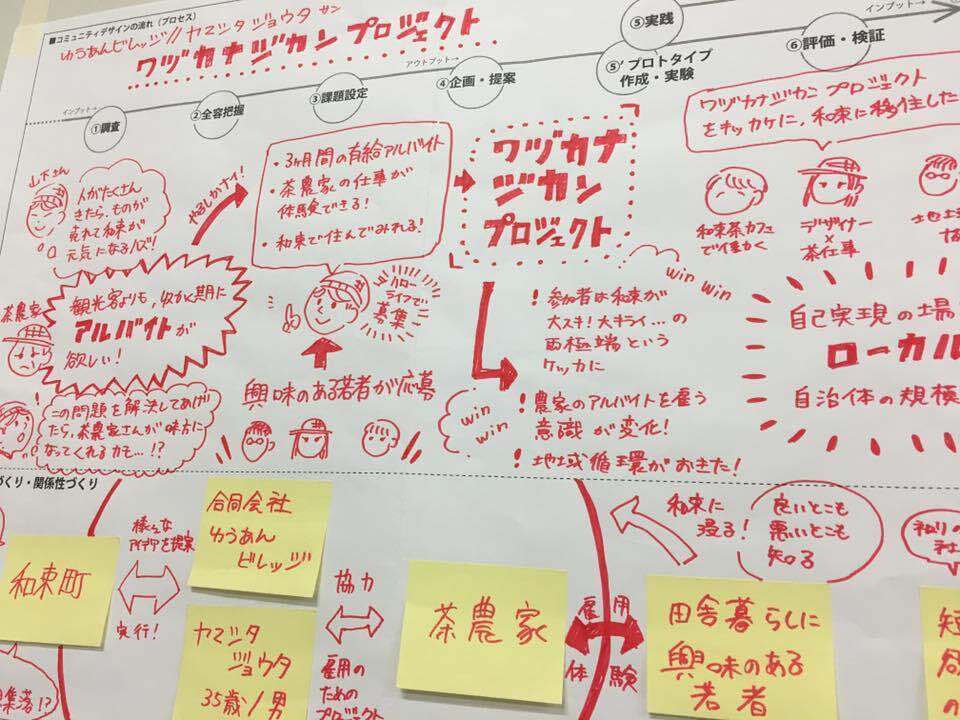 ■コミュニティデザインの流れ（プロセス）
ゆうあんビレッジ//ヤマシタ ジョウタ サン
ワヅカナジカン プロジェクト
インプット→
①調査
②全容把握
③課題設定
アウトプット→
④企画・提案
⑤実践
⑤’プロトタイプ
作成・実験
インプット→
⑥評価・検証
山下さん
人がたくさん
きたら、ものが
売れて和束が
元気になるノズ!
やるしかナイ!
・3ヶ月間の有給アルバイト
・茶農家の仕事が
体験できる!
・和束で住んでみれる!
ワヅカナ
ジカン
プロジェクト
ワヅカナジカン プロジェクト
をキッカケに、和束に移住した
和束茶カフェ
で働く
デザイナー
×
茶仕事
茶農家
観光客よりも、収かく期に
アルバイトが
欲しい!
ハロー
ライフで
募集
興味のある若者が応募
この問題を解決してあげ
たら、茶農家さんが味方に
なってくれるカモ…!?
win win
! 参加者は和束が
大スキ!大キライ…の
両極端という
ケッカに
win
win
! 農家のアルバイトを雇う
意識が変化!
! 地域循環がおきた!
自己実現の場
ローカル
自治体の規模
づくり・関係性づくり
和束町
様々な
アイデアを提案
実行!
合同会社
ゆうあん
ビレッジ
ヤマシタ
ジョウタ
35歳/男
協力
雇用の
ための
プロジェクト
茶農家
雇用
体験
和束に
浸る!
良いとこも
悪いとこも
知る
田舎暮らしに
興味のある
若者